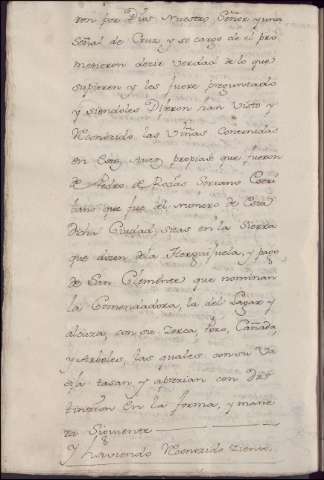 ron por Dios Nuestro Señor y una
Señal de Cruz y so cargo de él pro
metieron decir verdad de lo que
supieren y les fuere preguntado
y siendoles Dijeron han visto y
Reconocido las Viñas Contenidas
en estos Autos propias que fueron
de Pedro de Rojas Soriano Escri
bano que fue del numero de esta
dicha Ciudad, sitas en la Sierra
que dicen de la Jerquijuela, y pago
de San Clemente que nominan
la Comendadora, la del Lagar y
alcuza, con su Zerca, Pozo, Cañada,
y Arboles, las quales con su Va
sija tasan, y aprezian con Dis
tinzion en la forma, y mane
ra Siguiente
Y haviendo Reconocido